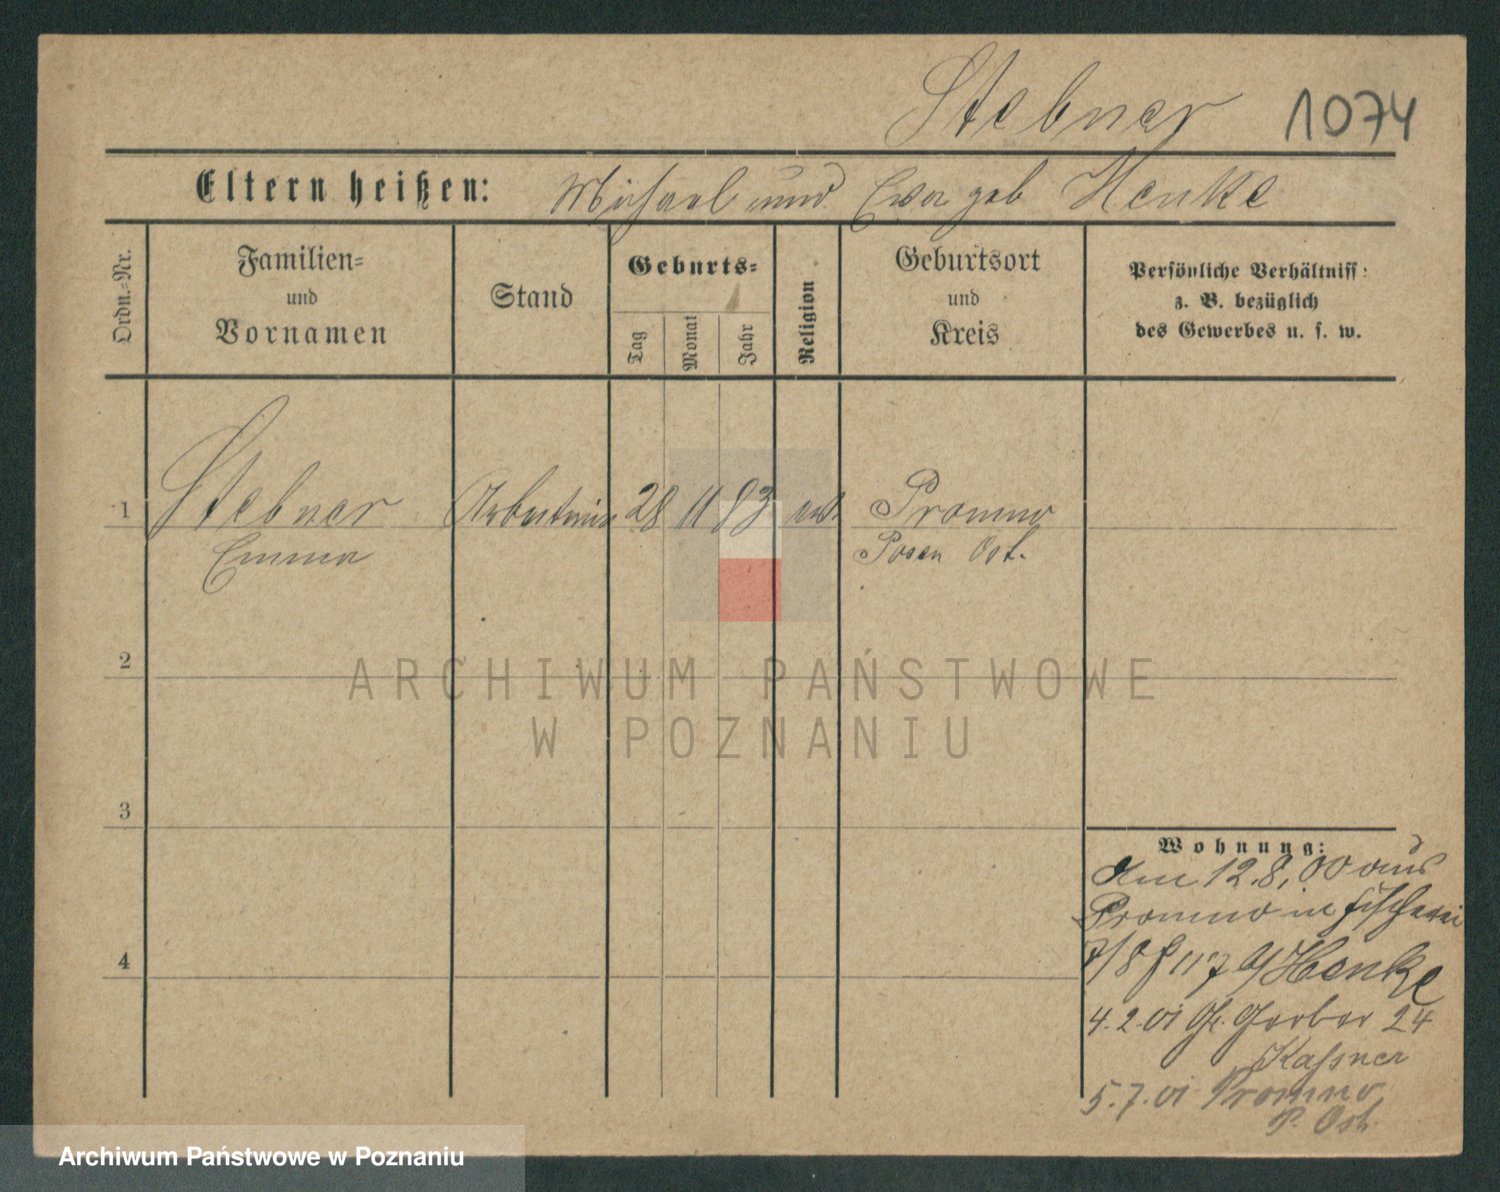 Stebner 1074
Eltern heißen: Michael und Eva geb Henke
Ordn.-Nr.
Familien-
und
Vornamen
Stand
Geburts-
Tag
Monat
Jahr
Religion
Geburtsort
und
Kreis
Persönliche Verhältniss:
z. B. bezüglich
des Gewerbes u. s. w.
1 Stebner Arbeiterin 28 11 83 Promno
Emma Posen Ost.
2
3
4
Wohnung:
Am 12.8.00 aus
Promno in Fischerei
7/8 b/Henke
4.2.01 Gr. Gerber 24
Kassner
5.7.01 Promno
P. Ost.
ARCHIWUM PAŃSTWOWE
W POZNANIU
Archiwum Państwowe w Poznaniu